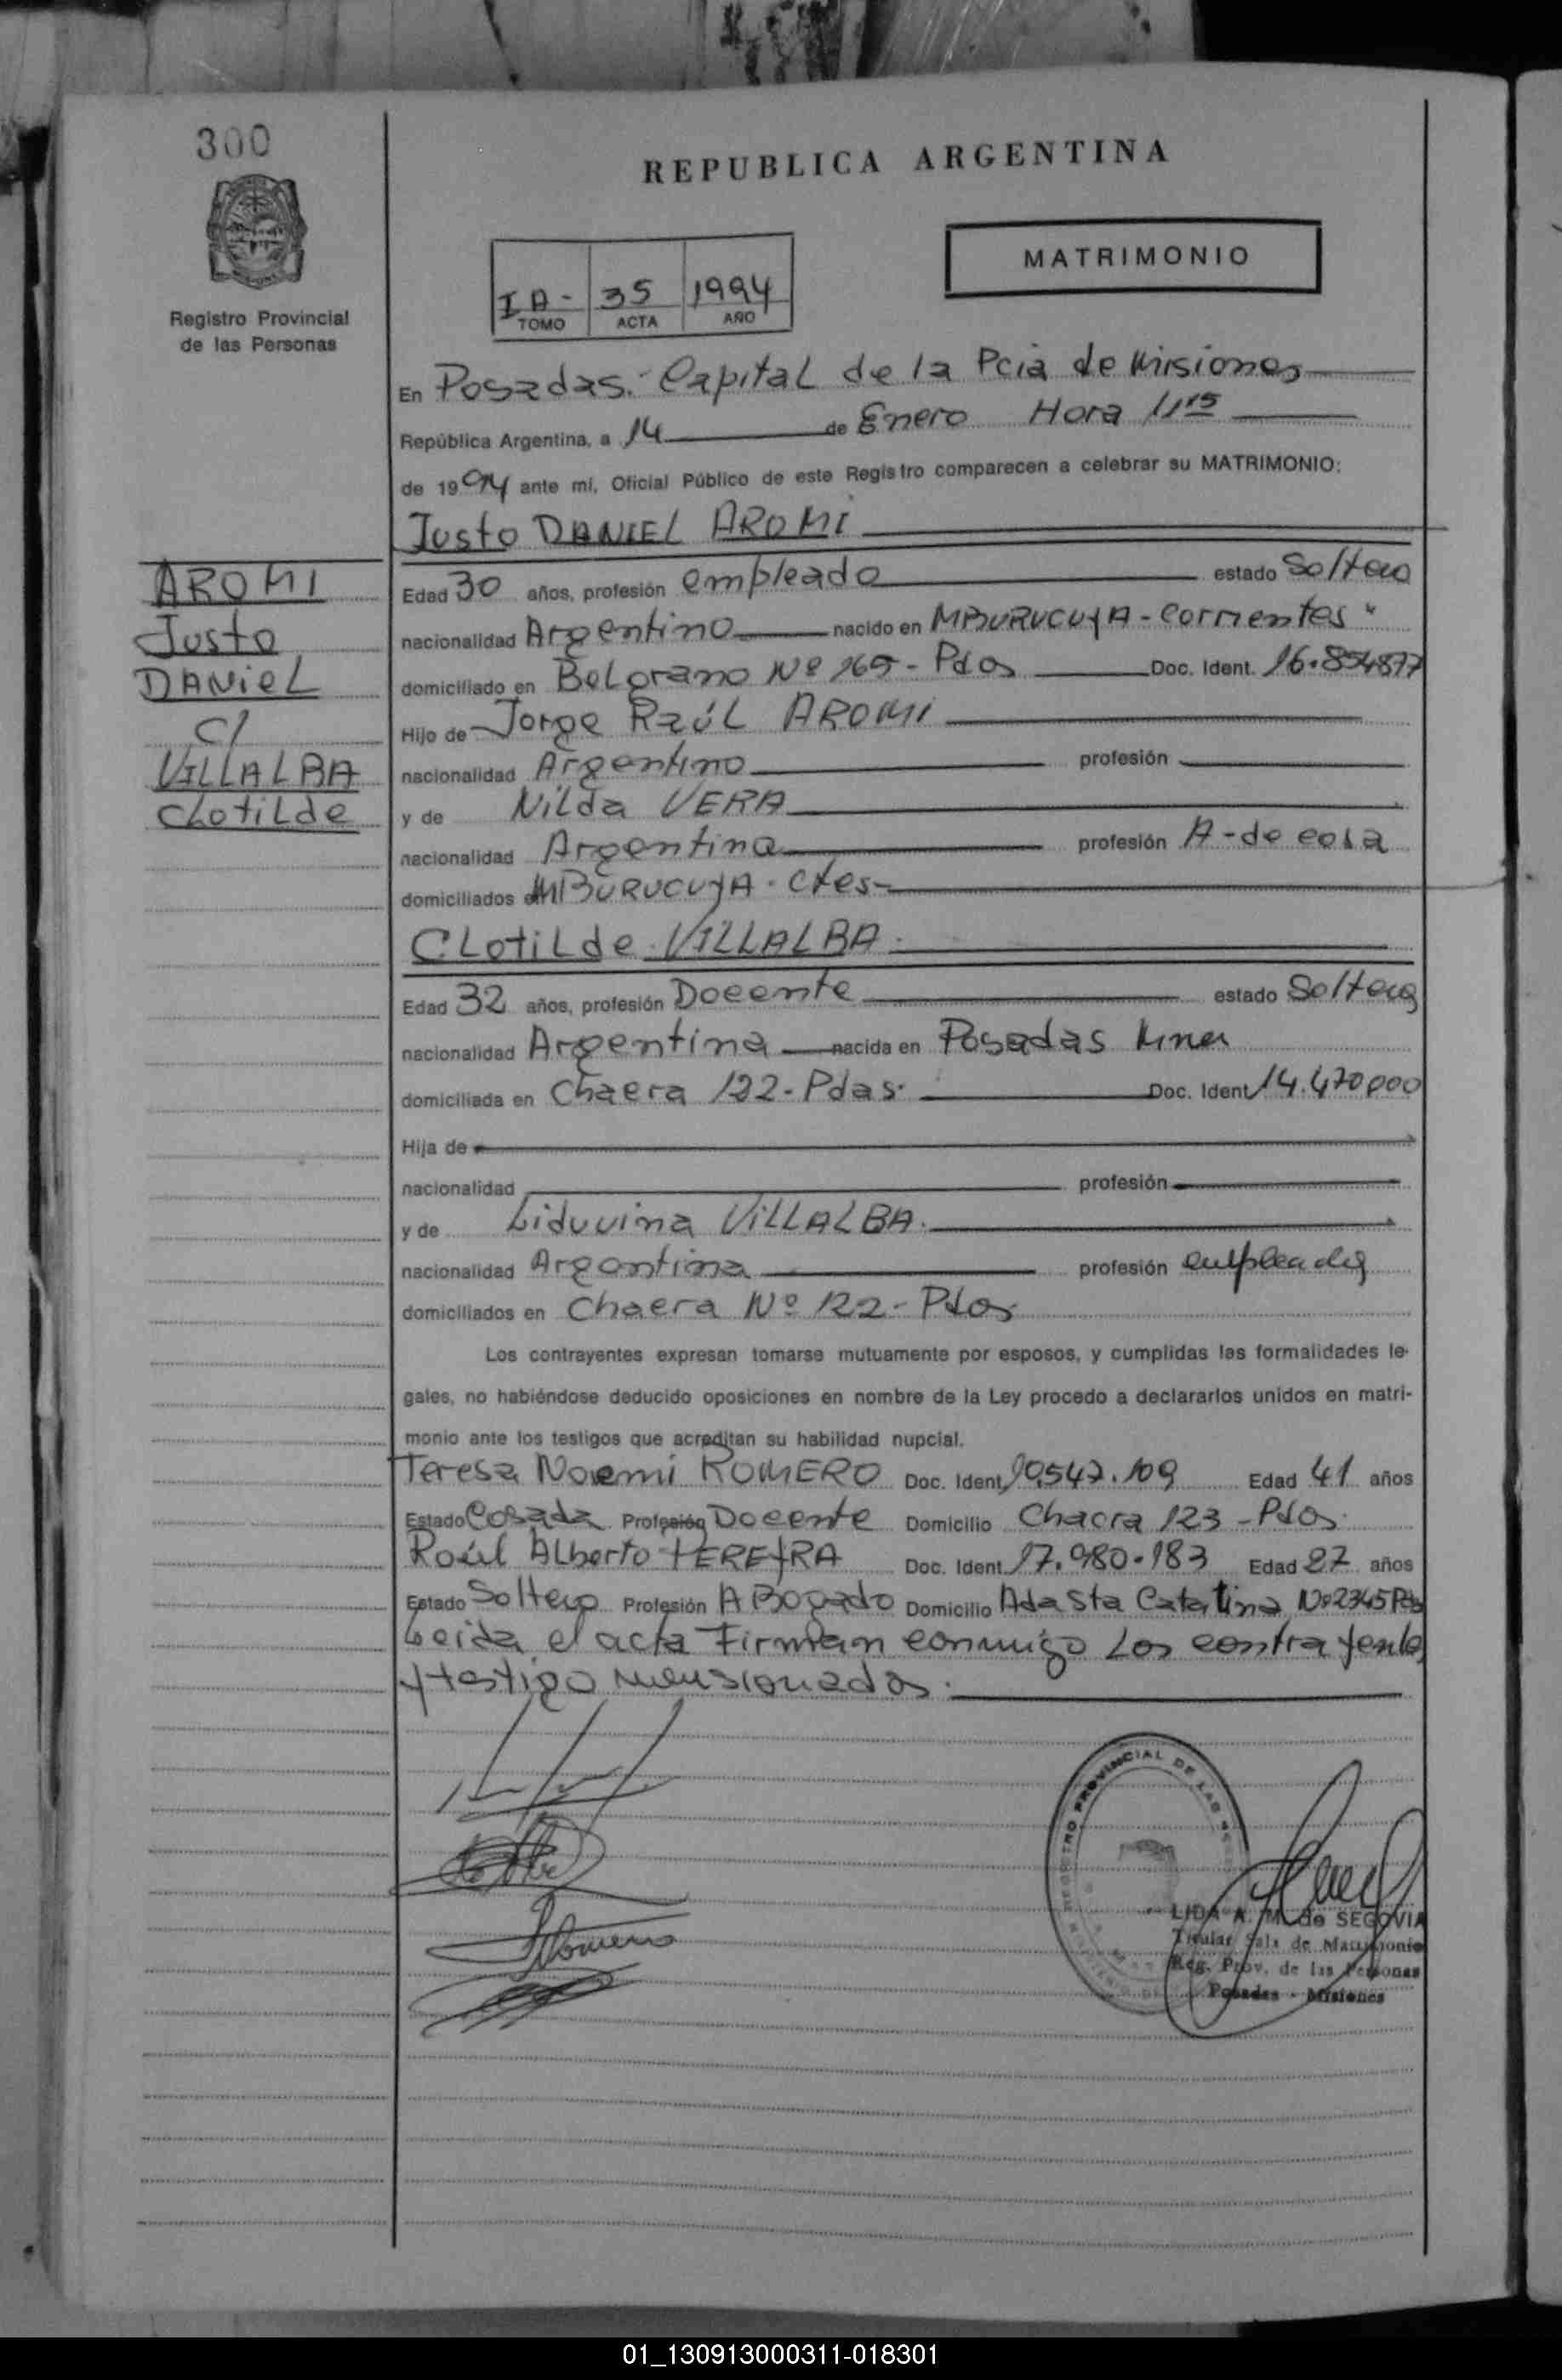 300
REPUBLICA ARGENTINA
MATRIMONIO
I A - 35 1994
TOMO ACTA AÑO
Registro Provincial
de las Personas
En Posadas.- Capital de la Pcia de Misiones
República Argentina, a 14 de Enero Hora 11 15
de 1994 ante mí, Oficial Público de este Registro comparecen a celebrar su MATRIMONIO:
Justo DANIEL AROMI
AROMI
Justo
DANIEL
C/
VILLALBA
CLotiLde
Edad 30 años, profesión empleado estado Soltero
nacionalidad Argentino nacido en MBURUCUYA - Corrientes"
domiciliado en BeLgrano Nº 165 - Pdas Doc. Ident. 16.854877
Hijo de Jorge RaúL AROMI
nacionalidad Argentino profesión
y de NiLda VERA
nacionalidad Argentina profesión A - de casa
domiciliados en MBURUCUYA. Ctes-
CLotiLde VILLALBA.
Edad 32 años, profesión Docente estado Soltera
nacionalidad Argentina nacida en Posadas Mnes
domiciliada en Chacra 122 - Pdas. Doc. Ident 14.470000
Hija de
nacionalidad profesión
y de Liduvina ViLLALBA.
nacionalidad Argentina profesión empleada
domiciliados en Chacra Nº 122 - Pdas.
Los contrayentes expresan tomarse mutuamente por esposos, y cumplidas las formalidades le-
gales, no habiéndose deducido oposiciones en nombre de la Ley procedo a declararlos unidos en matri-
monio ante los testigos que acreditan su habilidad nupcial.
Teresa Noemi ROMERO Doc. Ident. 10.547.109 Edad 41 años
Estado Casada Profesión Docente Domicilio Chacra 123 - Pdas.
Raúl ALberto PEREYRA Doc. Ident. 17.980.183 Edad 27 años
Estado Soltero Profesión ABogado Domicilio Avda Sta Catalina Nº 2345 Pdas
Leida el acta Firman conmigo Los contrayentes
y testigo mensionados.
REGISTRO PROVINCIAL DE LAS
LIDA A. M. de SEGOVIA
Titular Sala de Matrimonio
Reg. Prov. de las Personas
Posadas - Misiones
01_130913000311-018301